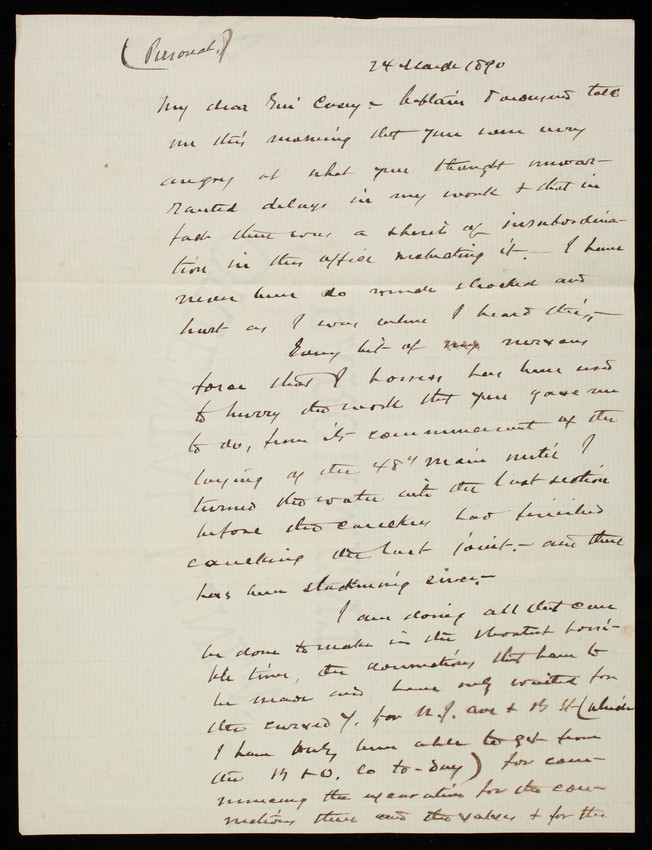 (Personal.)
24 March 1890
My dear Gen'l Casey - Captain told
me this morning that you were very
angry at what you thought unwar-
ranted delays in my work & that in
fact there was a spirit of insubordina-
tion in this office it. - I have
never been so much shocked and
hurt as I was when I heard this, -
Every bit of nervous
force that I possess has been used
to hurry the work that you gave me
to do, from its commencement of the
laying of the 48" main until I
turned the water into the last section
before the caulkers had finished
caulking the last joint. - and there
has been slackening since. -
I am doing all that can
be done to make in the shortest possi-
ble time, the connections that have to
be made and have only waited for
the cursed Y. for N.J. ave & B St (which
I have only been able to get from
the B & O. Co to-day) for com-
mencing the excavation for the con-
nections there and the valves & for the